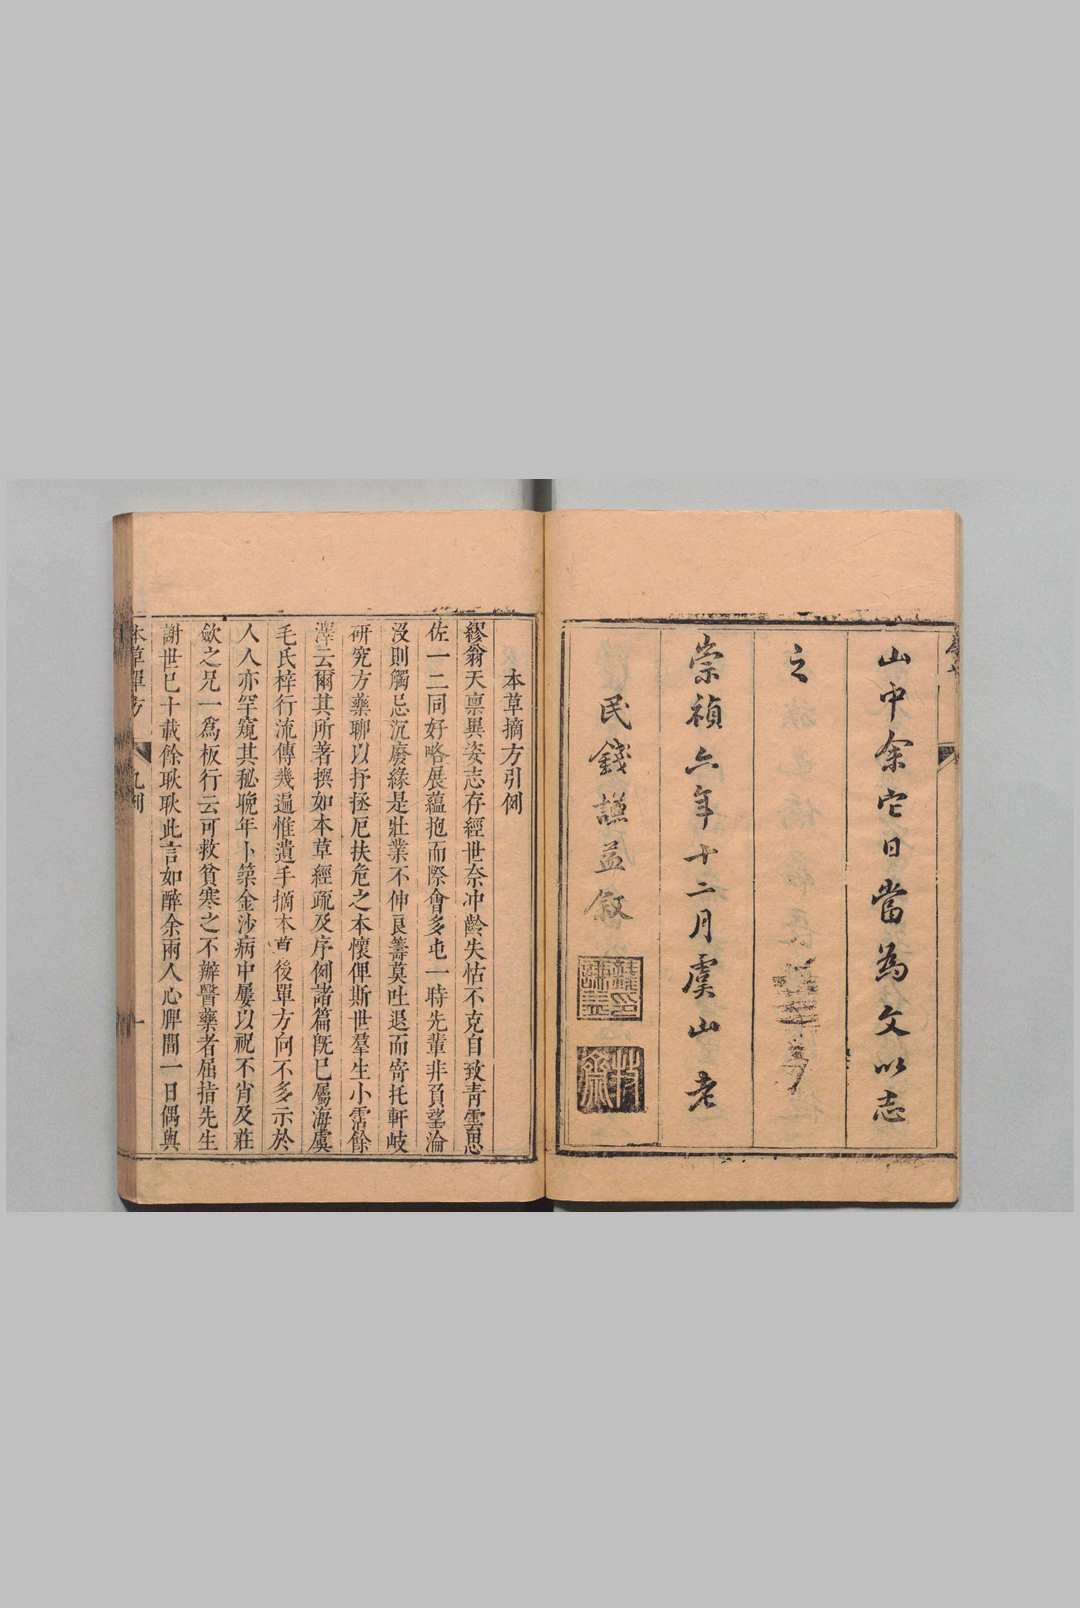 山中余它日當為文以志
之
崇禎六年十二月虞山老
民錢謙益敘
本草摘方引例
繆翁天稟異姿志存經世奈冲齡失怙不克自致青雲思
佐一二同好略展蘊抱而際會多屯一時先輩非負望淪
沒則觸忌沉廢緣是壯業不伸良籌莫吐退而寄托軒岐
研究方藥聊以抒拯厄扶危之本懷俾斯世羣生小霑餘
澤云爾其所著撰如本草經疏及序例諸篇旣已屬海虞
毛氏梓行流傳幾遍惟遺手摘本首後單方向不多示於
人人亦罕窺其秘晚年卜築金沙病中屢以祝不肖及莊
歛之兄一爲板行云可救貧寒之不辦醫藥者屈指先生
謝世已十載餘耿耿此言如醉余兩人心脾間一日偶與
本草單方
凡例
一